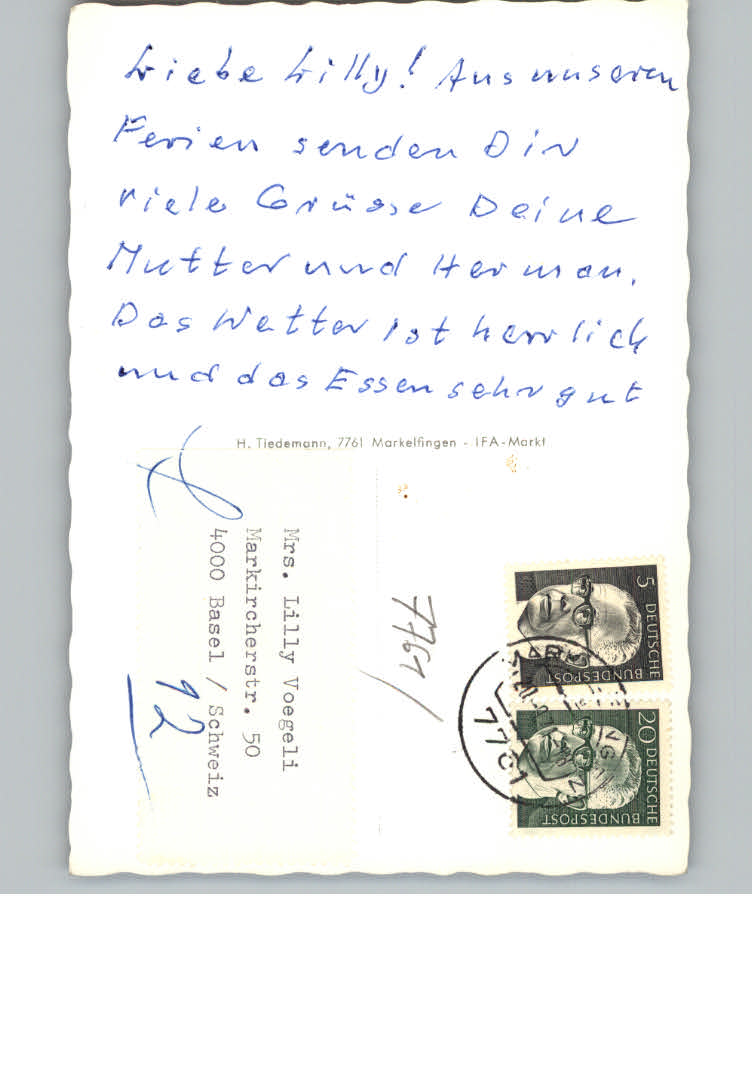 Liebe Lilly! Aus unseren
Ferien senden Dir
viele Grüsse Deine
Mutter und Herman.
Das Wetter ist herrlich
und das Essen sehr gut
H. Tiedemann, 7761 Markelfingen - IFA-Markt
Mrs. Lilly Voegeli
Markircherstr. 50
4000 Basel / Schweiz
12
7761
5 DEUTSCHE
BUNDESPOST
20 DEUTSCHE
BUNDESPOST
7761